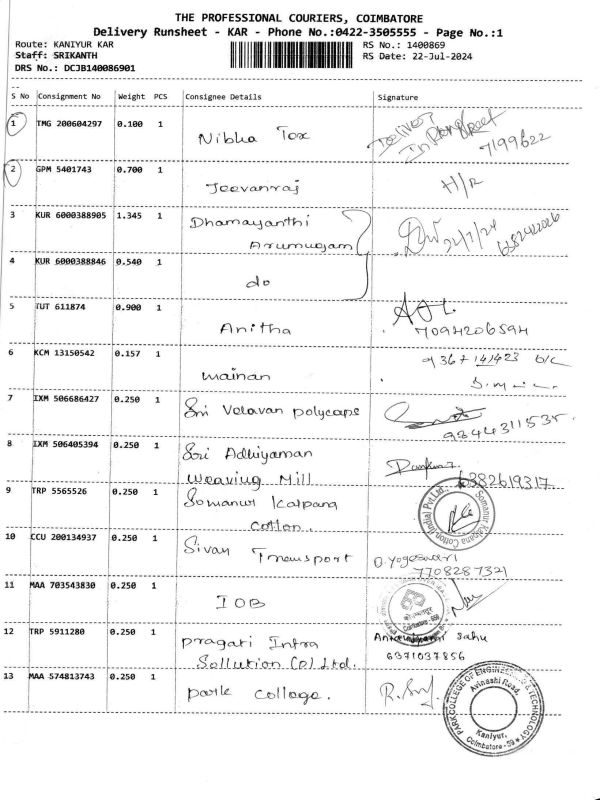 THE PROFESSIONAL COURIERS, COIMBATORE
Delivery Runsheet - KAR - Phone No.:0422-3505555 - Page No.:1
Route: KANIYUR KAR
RS No.: 1400869
Staff: SRIKANTH
RS Date: 22-Jul-2024
DRS No.: DCJB140086901
S No Consignment No Weight PCS Consignee Details Signature
1 TMG 200604297 0.100 1 Nibha Tex
7199622
2 GPM 5401743 0.700 1 Jeevanraj H/R
3 KUR 6000388905 1.345 1 Dhamayanthi
Arumugam 22/7/24
4 KUR 6000388846 0.540 1 do
5 TUT 611874 0.900 1 Anitha 7094206594
6 KCM 13150542 0.157 1 mainan
7 IXM 506686427 0.250 1 Sri Velavan polycaps 9844311535
8 IXM 506405394 0.250 1 Sri Adhiyaman
Weaving Mill 6382619317
9 TRP 5565526 0.250 1 Somanur Kalpana
Cotton. Somanur Kalpana Cotton (India) Pvt Ltd.
10 CCU 200134937 0.250 1 Sivan Transport D. Yogeswari
7708287321
11 MAA 703543830 0.250 1 IOB
12 TRP 5911280 0.250 1 pragati Infra Sahu
Sollution (P) Ltd. 6371037856
13 MAA 574813743 0.250 1 park college.
PARK COLLEGE OF ENGINEERING & TECHNOLOGY
Avinashi Road,
Kaniyur,
Coimbatore - 59